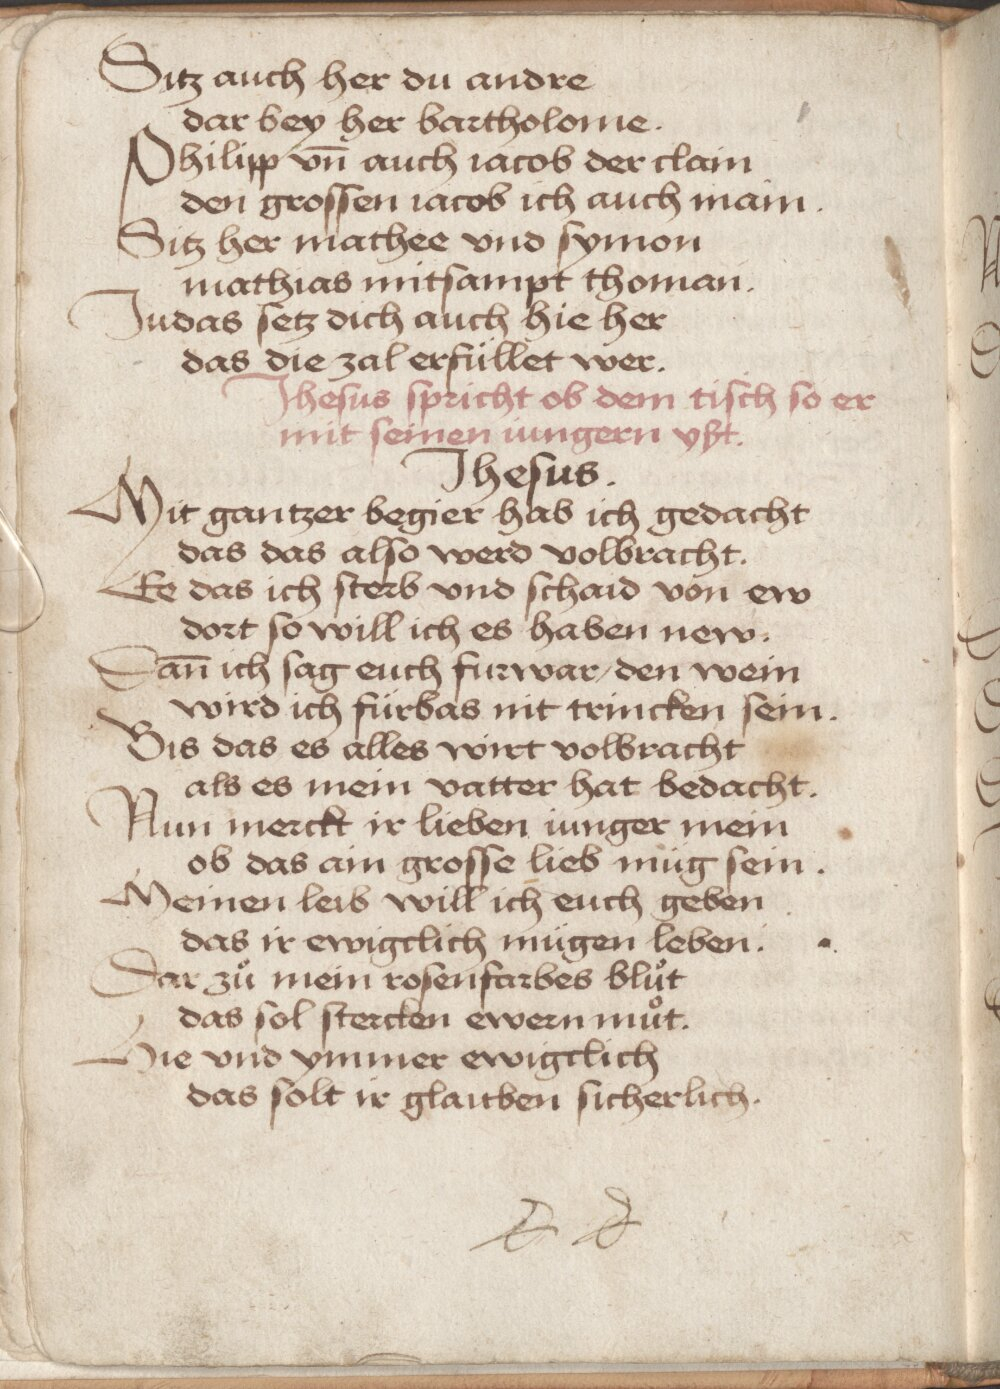 Sitz auch her du andre
dar bey her bartholome.
Philipp vn̄ auch iacob der clain
den grossen iacob ich auch main.
Sitz her mathee vnd symon
mathias mitsampt thoman.
Judas setz dich auch hie her
das die zal erfüllet wer.
Jhesus spricht ob dem tisch so er
mit seinen iungern yßt.
Jhesus.
Mit gantzer begier hab ich gedacht
das das also werd volbracht.
Ee das ich sterb vnd schaid von ew
dort so will ich es haben new.
Dan̄ ich sag euch furwar/den wein
wird ich fürbas nit trincken sein.
Bis das es alles wirt volbracht
als es mein vatter hat bedacht.
Nun merckt ir lieben iunger mein
ob das ain grosse lieb müg sein.
Meinen leib will ich euch geben
das ir ewigclich mügen leben.
Dar zů mein rosenfarbes blůt
das sol stercken ewern můt.
Hie vnd ymmer ewigclich
das solt ir glauben sicherlich.